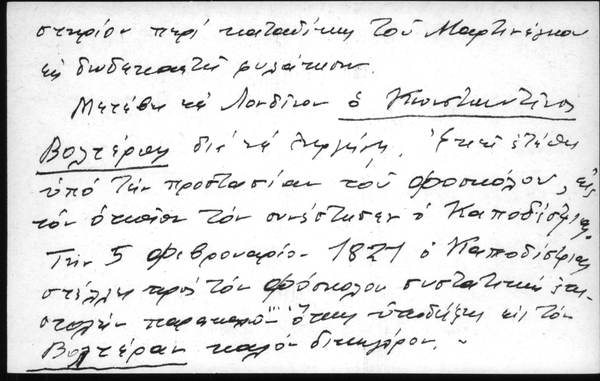 στηρίον περί καταδίκης τοῦ Μαρτινέγκου
εἰς δωδεκαετῆ φυλάκισιν.
Μετέβη εἰς Λονδῖνον ὁ Κωνσταντῖνος
Βολτέρας διά νά. Ἐκεῖ ἐτέθη
ὑπό τήν προστασίαν τοῦ Φοσκόλου, εἰς
τόν ὁποῖον τόν συνέστησεν ὁ Καποδίστριας.
Τήν 5 Φεβρουαρίου 1821 ὁ Καποδίστριας
στέλλει πρός τόν Φόσκολον συστατική ἐπι-
στολήν παρακαλῶν ὅπως ὑποδείξῃ εἰς τόν
Βολτέραν καλόν δικηγόρον. -